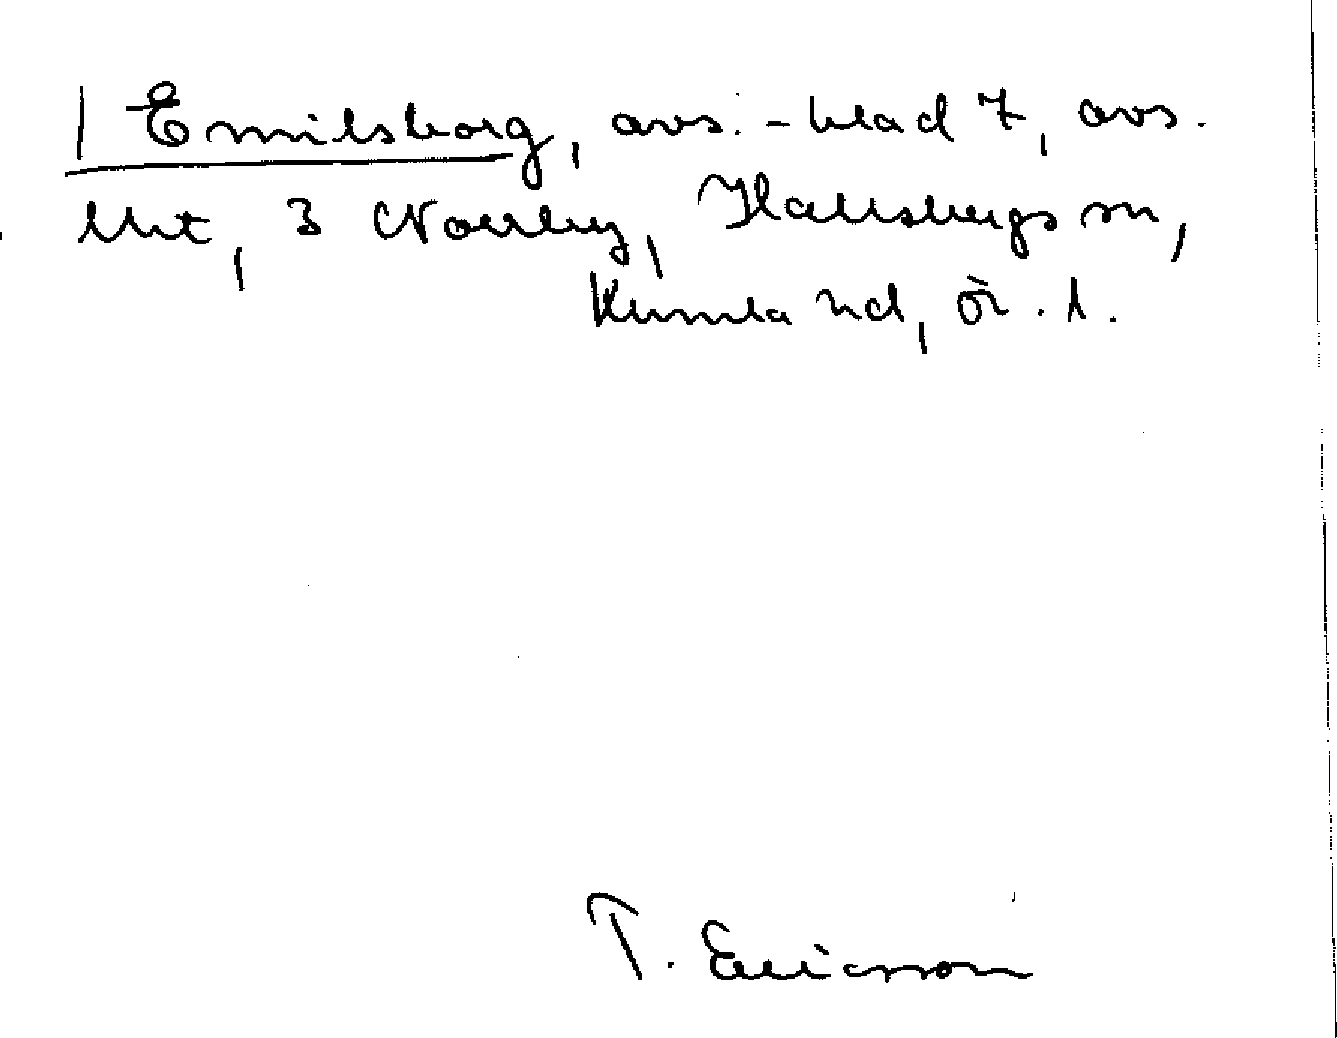 1 Emilsborg, avs.-blad 7, avs.
Mot, 3 Norrby, Hallsbergs sn,
Kumla hd, Ör. l.
T. Ericsson